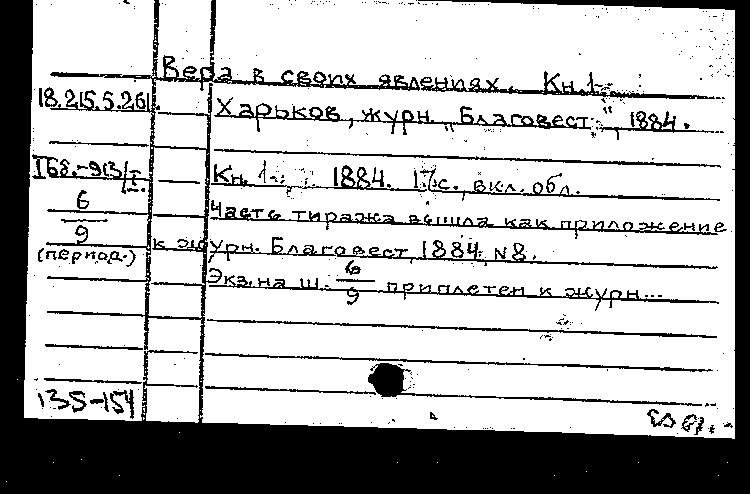 Вера в своих явлениях. Кн. 1
18.215.5.261.
Харьков, журн. „Благовест", 1884.
I 68.-913/I
Кн. 1. 1884. 17с., вкл. обл.
6
9
(период.)
Часть тиража вышла как приложение
к журн. Благовест, 1884, N8.
Экз. на ш. 6/9 приплетен к журн...
135-154